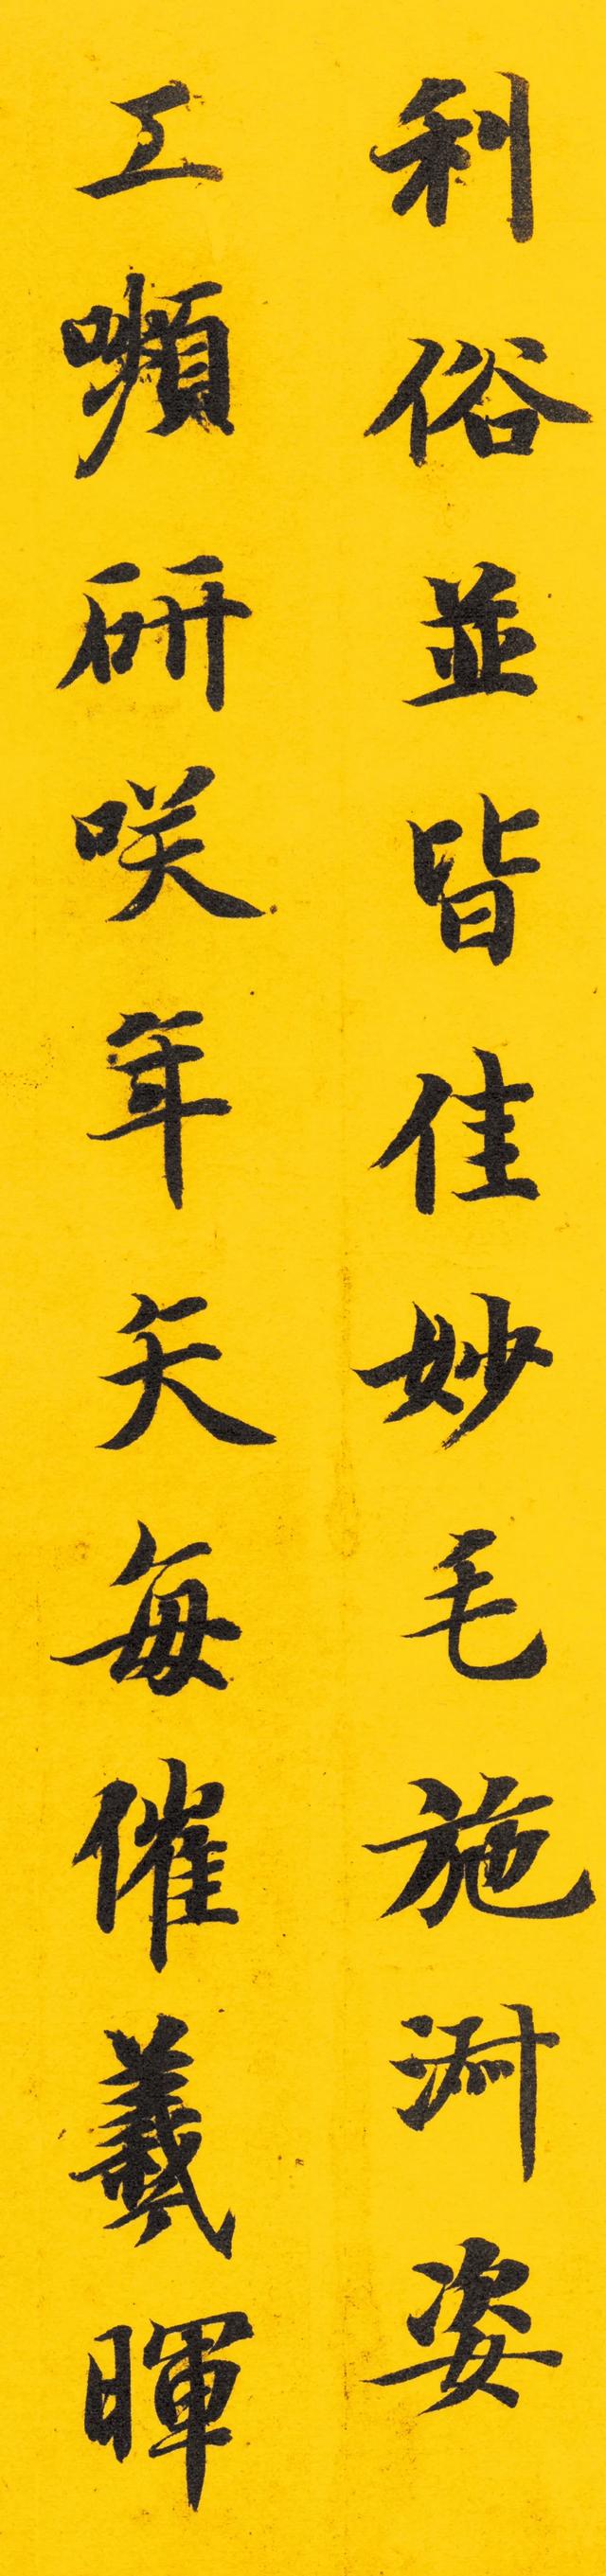 利俗並皆佳妙毛施淑姿
工嚬研咲年矢每催羲暉